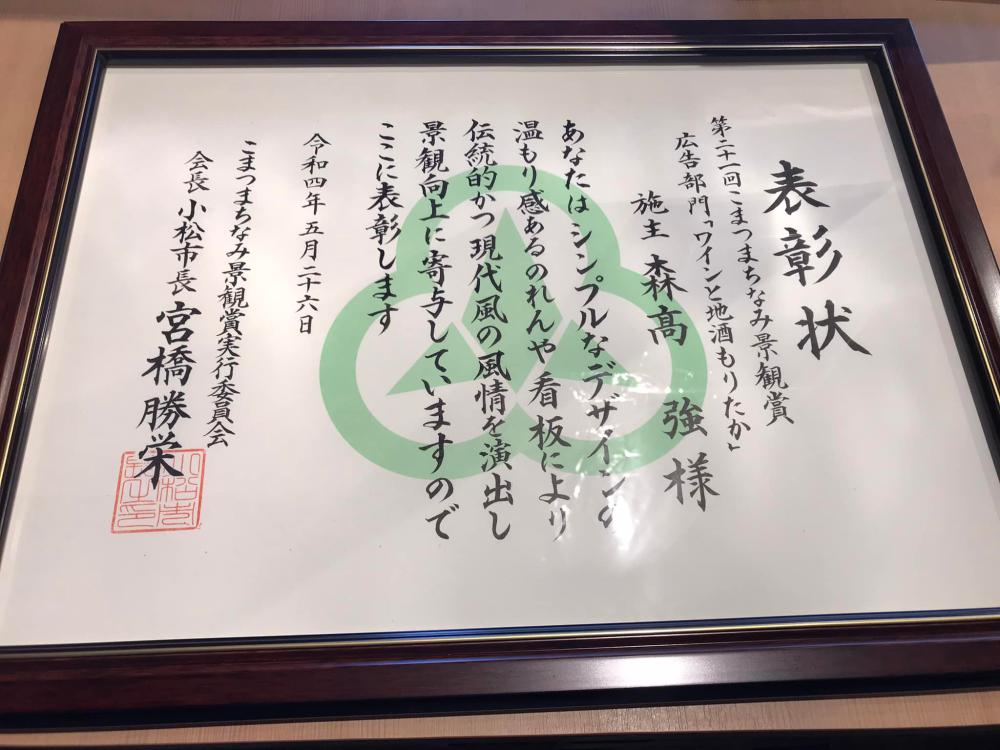 表彰状
第二十一回こまつまちなみ景観賞
広告部門「ワインと地酒もりたか」
施主 森髙 強 様
あなたはシンプルなデザインの
温もり感あるのれんや看板により
伝統的かつ現代風の風情を演出し
景観向上に寄与していますので
ここに表彰します
令和四年五月二十六日
こまつまちなみ景観賞実行委員会
会長 小松市長 宮橋勝栄